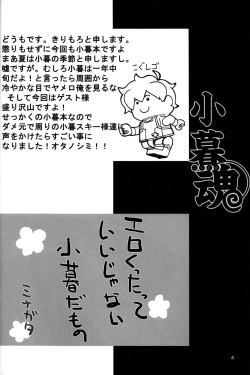 どうもです。きりもろと申します。
懲りもせずに今回も小暮本ですよ
まあ夏は小暮の季節と申しますし。
嘘ですが。むしろ小暮は一年中
旬だよ!と言ったら周囲から
冷やかな目でヤメロ俺を見るな
そして今回はゲスト様
盛り沢山ですよ!
せっかくの小暮本なので
ダメ元で周りの小暮スキー様達に
声をかけたらすごい事に
なりました!オタノシミ!!
こぐしご
小暮魂
エロくったって
いいじゃない
小暮だもの
ミナガタ
4